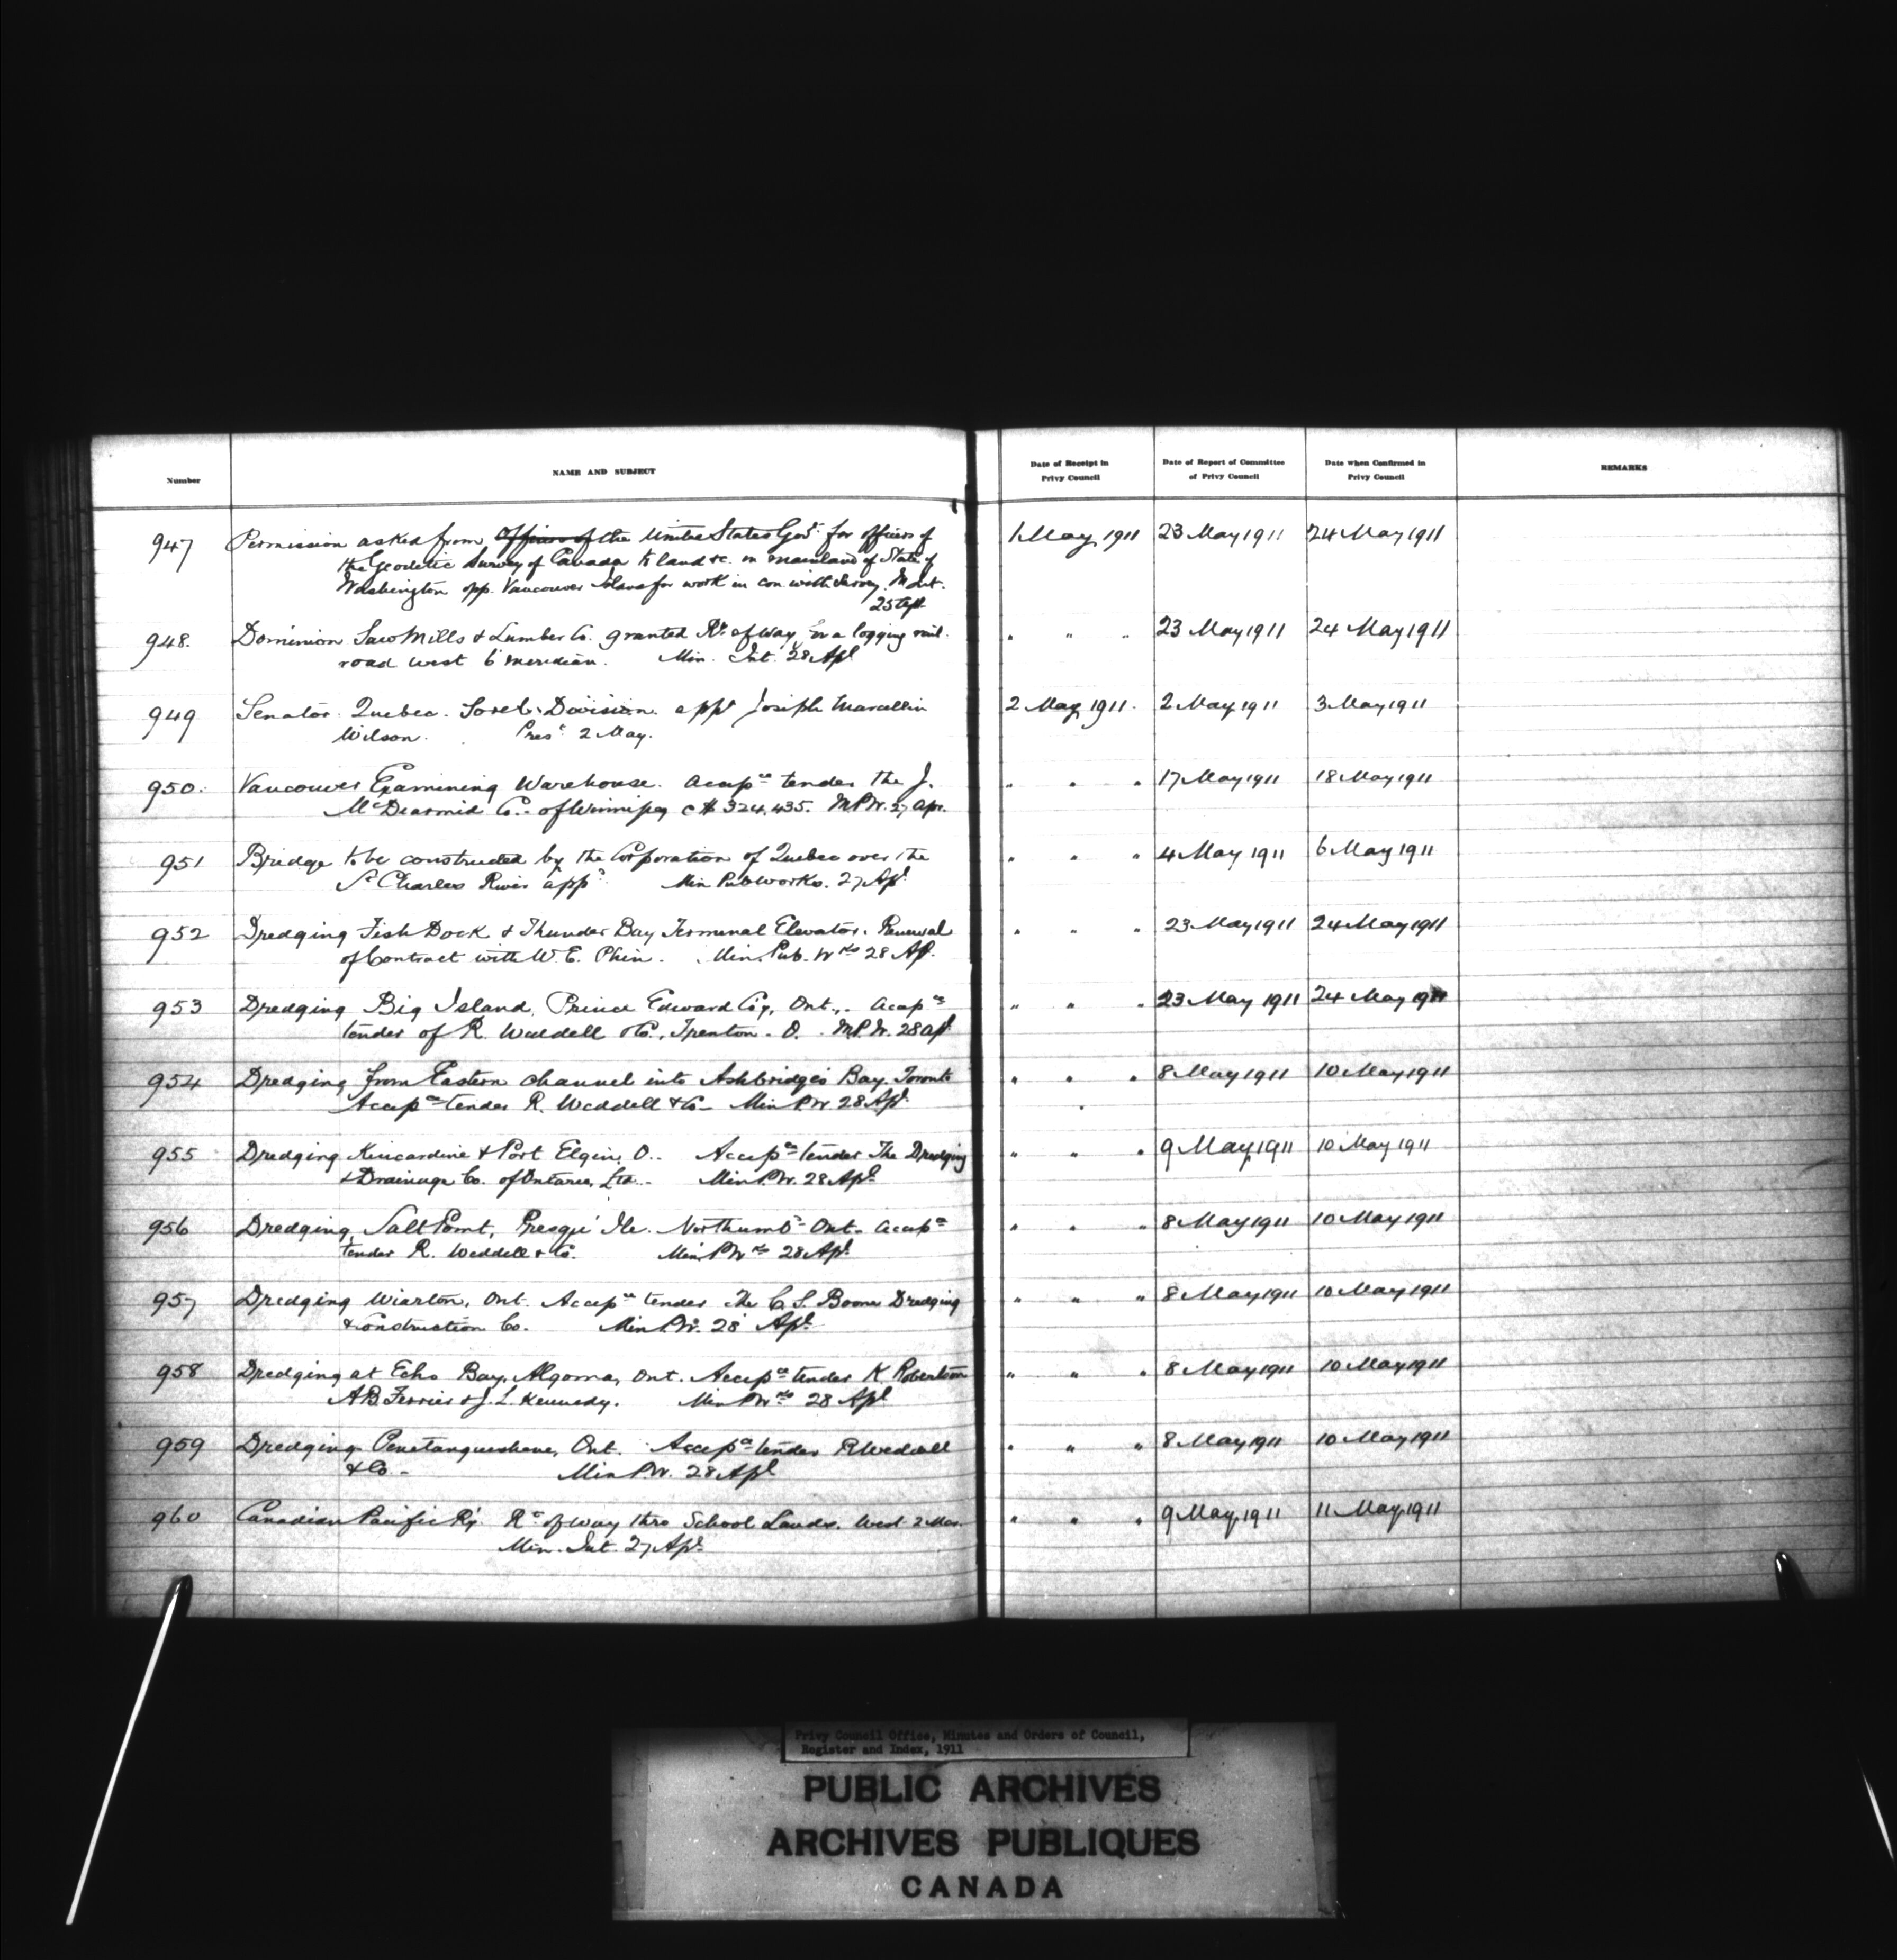 Number NAME AND SUBJECT Date of Receipt in Privy Council Date of Report of Committee of Privy Council Date when Confirmed in Privy Council REMARKS
947 Permission asked from Officers of the United States Govt for officers of 1 May 1911 23 May 1911 24 May 1911
the Geodetic Survey of Canada to land &c. on mainland of State of
Washington opp. Vancouver Island for work in con with Survey. M Int.
25 Apl
948. Dominion Saw Mills & Lumber Co. granted Rt of Way for a logging rail- " " " 23 May 1911 24 May 1911
road west 6 meridian. Min. Int. 28 Apl
949 Senator. Quebec. Sorel Division. appt Joseph Marcellin 2 May 1911. 2 May 1911 3 May 1911
Wilson. Prest 2 May.
950. Vancouver Examining Warehouse. Accepce tender the J. " " " 17 May 1911 18 May 1911
McDearmid Co. of Winnipeg @ $324,435. M.P.W. 27 Apr.
951 Bridge to be constructed by the Corporation of Quebec over the " " " 4 May 1911 6 May 1911
St Charles River appd Min Pub Works. 27 Apl
952 Dredging Fish Dock & Thunder Bay Terminal Elevator. Renewal " " " 23 May 1911 24 May 1911
of Contract with W. E. Phin. Min. Pub. Wks 28 Ap.
953 Dredging Big Island, Prince Edward Co, Ont., Accepce " " " 23 May 1911 24 May 1911
tender of R. Weddell & Co., Trenton. O. M.P.W. 28 Apl
954 Dredging from Eastern channel into Ashbridge's Bay. Toronto " " " 8 May 1911 10 May 1911
Accepce tender R. Weddell & Co Min P.W. 28 Apl
955 Dredging Kincardine & Port Elgin, O. Accepce tender The Dredging " " " 9 May 1911 10 May 1911
& Drainage Co. of Ontario, Ltd. Min P.W. 28 Apl
956 Dredging Salt Point, Presqu' Ile. Northumbd Ont. Accepce " " " 8 May 1911 10 May 1911
tender R. Weddell & Co. Min P Wks 28 Apl
957 Dredging Wiarton, Ont. Accepce tender The C. S. Boone Dredging " " " 8 May 1911 10 May 1911
& Construction Co. Min P.W. 28 Apl
958 Dredging at Echo Bay, Algoma, Ont. Accepce tender K. Robertson " " " 8 May 1911 10 May 1911
A B Ferrier & J. L. Kennedy. Min P Wks 28 Apl
959 Dredging Penetanguishene, Ont. Accepce tender R Weddell " " " 8 May 1911 10 May 1911
& Co. Min P.W. 28 Apl
960 Canadian Pacific Ry. Rt of way thro School Lands. West 2 Mer. " " " 9 May 1911 11 May 1911
Min. Int. 27 Apl
Privy Council Office, Minutes and Orders of Council,
Register and Index, 1911
PUBLIC ARCHIVES
ARCHIVES PUBLIQUES
CANADA